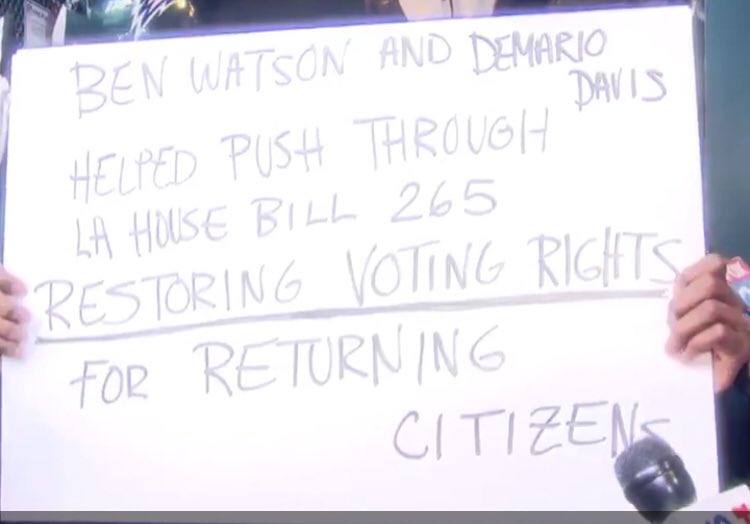 BEN WATSON AND DEMARIO
DAVIS
HELPED PUSH THROUGH
LA HOUSE BILL 265
RESTORING VOTING RIGHTS
FOR RETURNING
CITIZENS